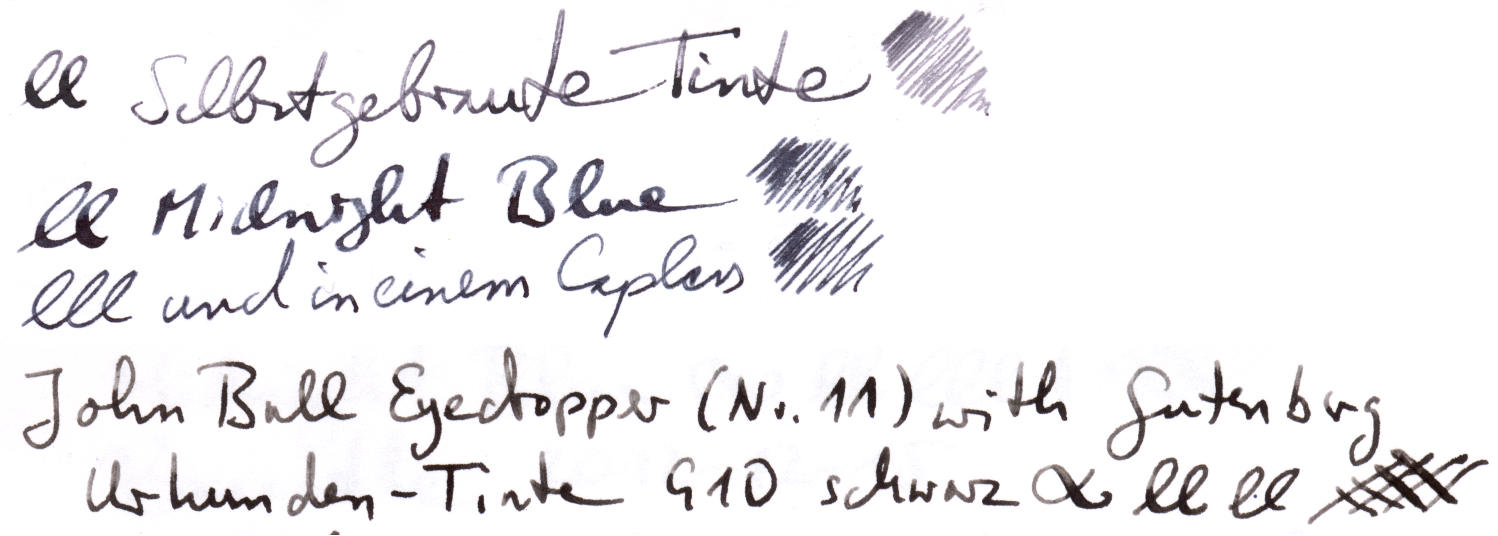 ll Selbstgebraute Tinte
ll Midnight Blue
lll und in einem Capless
John Bull Eyedropper (Nr. 11) with Gutenberg
Urkunden-Tinte G10 schwarz ll ll